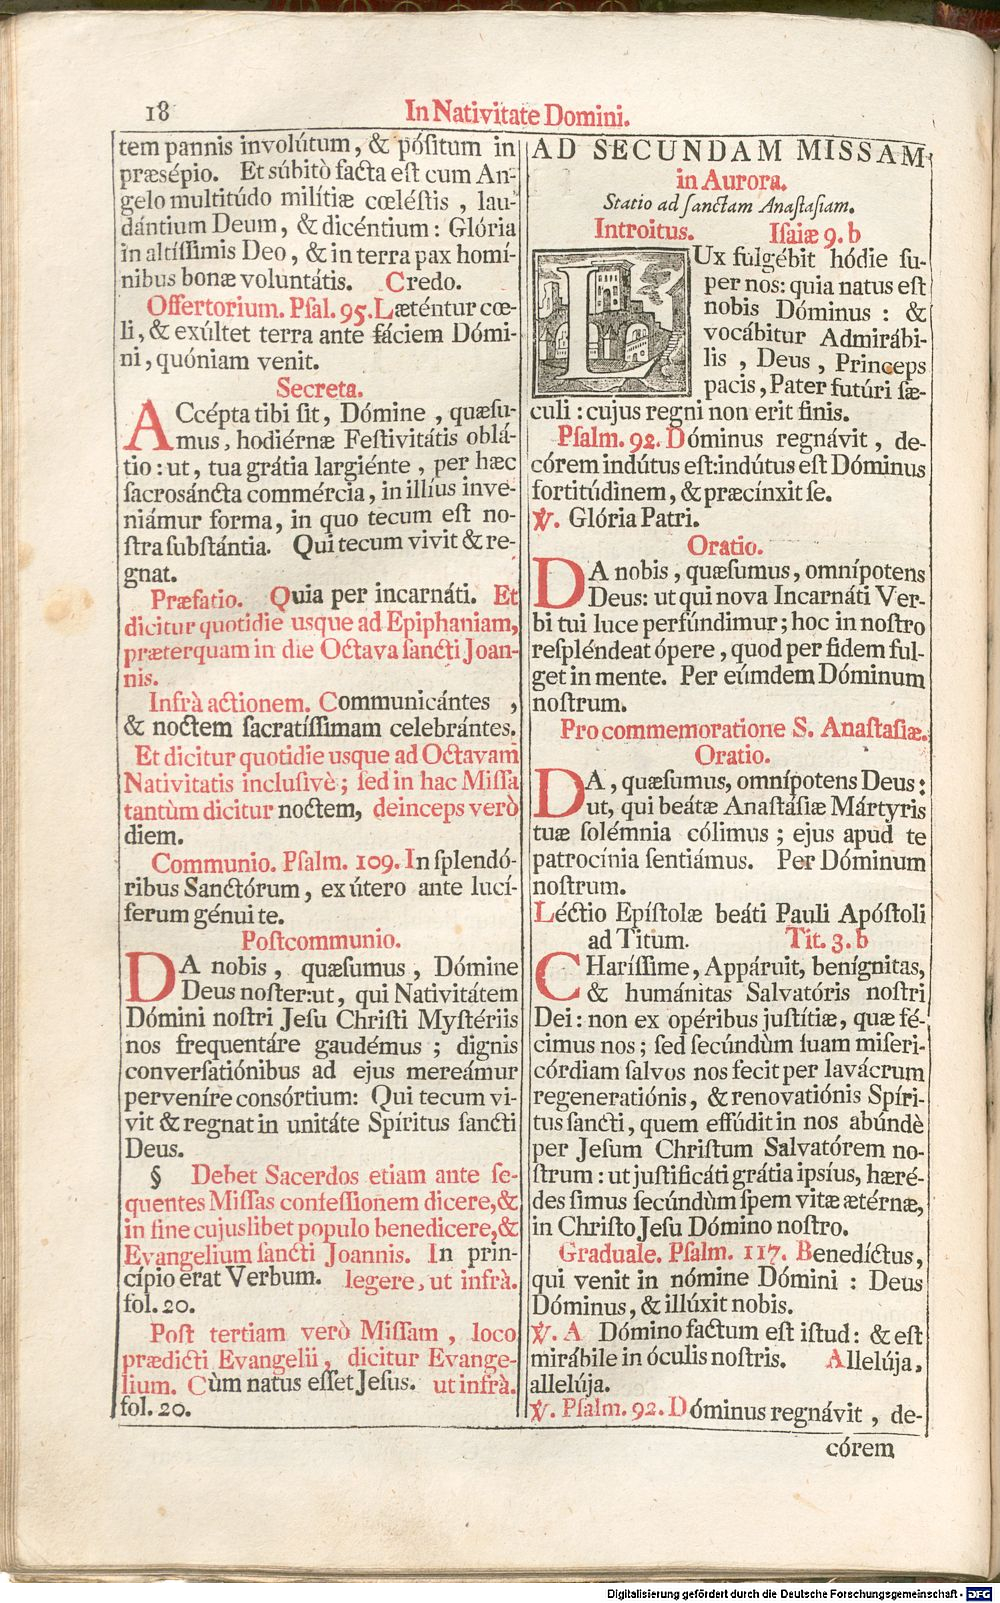 18
In Nativitate Domini.
tem pannis involútum, & pósitum in
præsépio. Et súbitò facta est cum An-
gelo multitúdo milítiæ cœléstis, lau-
dántium Deum, & dicéntium: Glória
in altíssimis Deo, & in terra pax homí-
nibus bonæ voluntátis. Credo.
Offertorium. Psal. 95. Læténtur cœ-
li, & exúltet terra ante fáciem Dómi-
ni, quóniam venit.
Secreta.
ACcépta tibi sit, Dómine, quæsu-
mus, hodiérnæ Festivitátis oblá-
tio: ut, tua grátia largiénte, per hæc
sacrosáncta commércia, in illíus inve-
niámur forma, in quo tecum est no-
stra substántia. Qui tecum vivit & re-
gnat.
Præfatio. Quia per incarnáti. Et
dicitur quotidie usque ad Epiphaniam,
præterquam in die Octava sancti Joan-
nis.
Infrà actionem. Communicántes,
& noctem sacratíssimam celebrántes.
Et dicitur quotidie usque ad Octavam
Nativitatis inclusivè; sed in hac Missa
tantùm dicitur noctem, deinceps verò
diem.
Communio. Psalm. 109. In splendó-
ribus Sanctórum, ex útero ante lucí-
ferum génui te.
Postcommunio.
DA nobis, quæsumus, Dómine
Deus noster: ut, qui Nativitátem
Dómini nostri Jesu Christi Mystériis
nos frequentáre gaudémus; dignis
conversatiónibus ad ejus mereámur
perveníre consórtium: Qui tecum vi-
vit & regnat in unitáte Spíritus sancti
Deus.
§ Debet Sacerdos etiam ante se-
quentes Missas confessionem dicere, &
in fine cujuslibet populo benedicere, &
Evangelium sancti Joannis. In prin-
cípio erat Verbum. legere, ut infrà.
fol. 20.
Post tertiam verò Missam, loco
prædicti Evangelii, dicitur Evange-
lium. Cùm natus esset Jesus. ut infrà.
fol. 20.
AD SECUNDAM MISSAM
in Aurora.
Statio ad sanctam Anastasiam.
Introitus. Isaiæ 9. b
LUx fulgébit hódie su-
per nos: quia natus est
nobis Dóminus: &
vocábitur Admirábi-
lis, Deus, Princeps
pacis, Pater futúri sæ-
culi: cujus regni non erit finis.
Psalm. 92. Dóminus regnávit, de-
córem indútus est: indútus est Dóminus
fortitúdinem, & præcínxit se.
℣. Glória Patri.
Oratio.
DA nobis, quæsumus, omnípotens
Deus: ut qui nova Incarnáti Ver-
bi tui luce perfúndimur; hoc in nostro
respléndeat ópere, quod per fidem ful-
get in mente. Per eúmdem Dóminum
nostrum.
Pro commemoratione S. Anastasiæ.
Oratio.
DA, quæsumus, omnípotens Deus:
ut, qui beátæ Anastásiæ Mártyris
tuæ solémnia cólimus; ejus apud te
patrocínia sentiámus. Per Dóminum
nostrum.
Léctio Epístolæ beáti Pauli Apóstoli
ad Titum. Tit. 3. b
CHaríssime, Appáruit, benígnitas,
& humánitas Salvatóris nostri
Dei: non ex opéribus justítiæ, quæ fé-
cimus nos; sed secúndùm suam miseri-
córdiam salvos nos fecit per lavácrum
regeneratiónis, & renovatiónis Spíri-
tus sancti, quem effúdit in nos abúndè
per Jesum Christum Salvatórem no-
strum: ut justificáti grátia ipsíus, hæré-
des simus secúndùm spem vitæ ætérnæ,
in Christo Jesu Dómino nostro.
Graduale. Psalm. 117. Benedíctus,
qui venit in nómine Dómini: Deus
Dóminus, & illúxit nobis.
℣. A Dómino factum est istud: & est
mirábile in óculis nostris. Allelúja,
allelúja.
℣. Psalm. 92. Dóminus regnávit, de-
córem
Digitalisierung gefördert durch die Deutsche Forschungsgemeinschaft - DFG